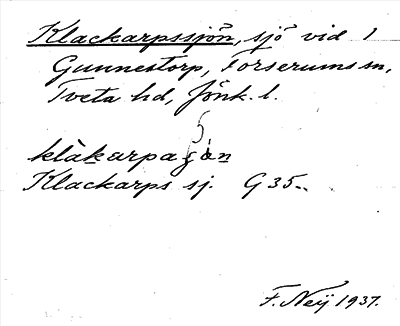 Klackarpssjön, sjö vid 1
Gunnestorp, Forserums sn,
Tveta hd, Jönk. l.
5
Klackarps sj. G 35.
F. Neij 1937.